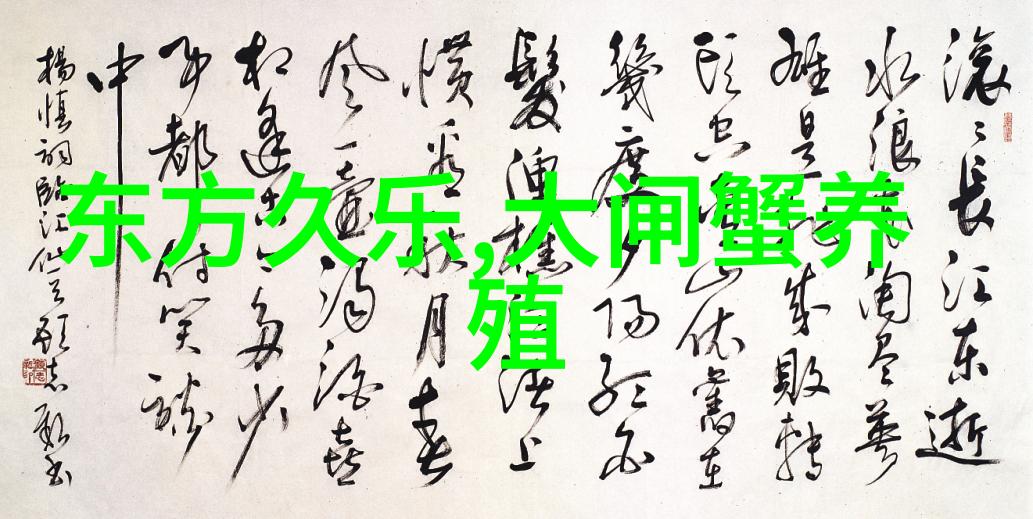 东方久乐,大闸蟹养
殖
滚〻长江东逝
水浪花淘尽英
雄是非成败转
头空青山依舊在
幾度夕阳红白
髮渔樵江渚上
惯看秋月春
风一壶濁酒喜
相逢古今多少
事都付笑谈
中
楊慎詞臨江仙